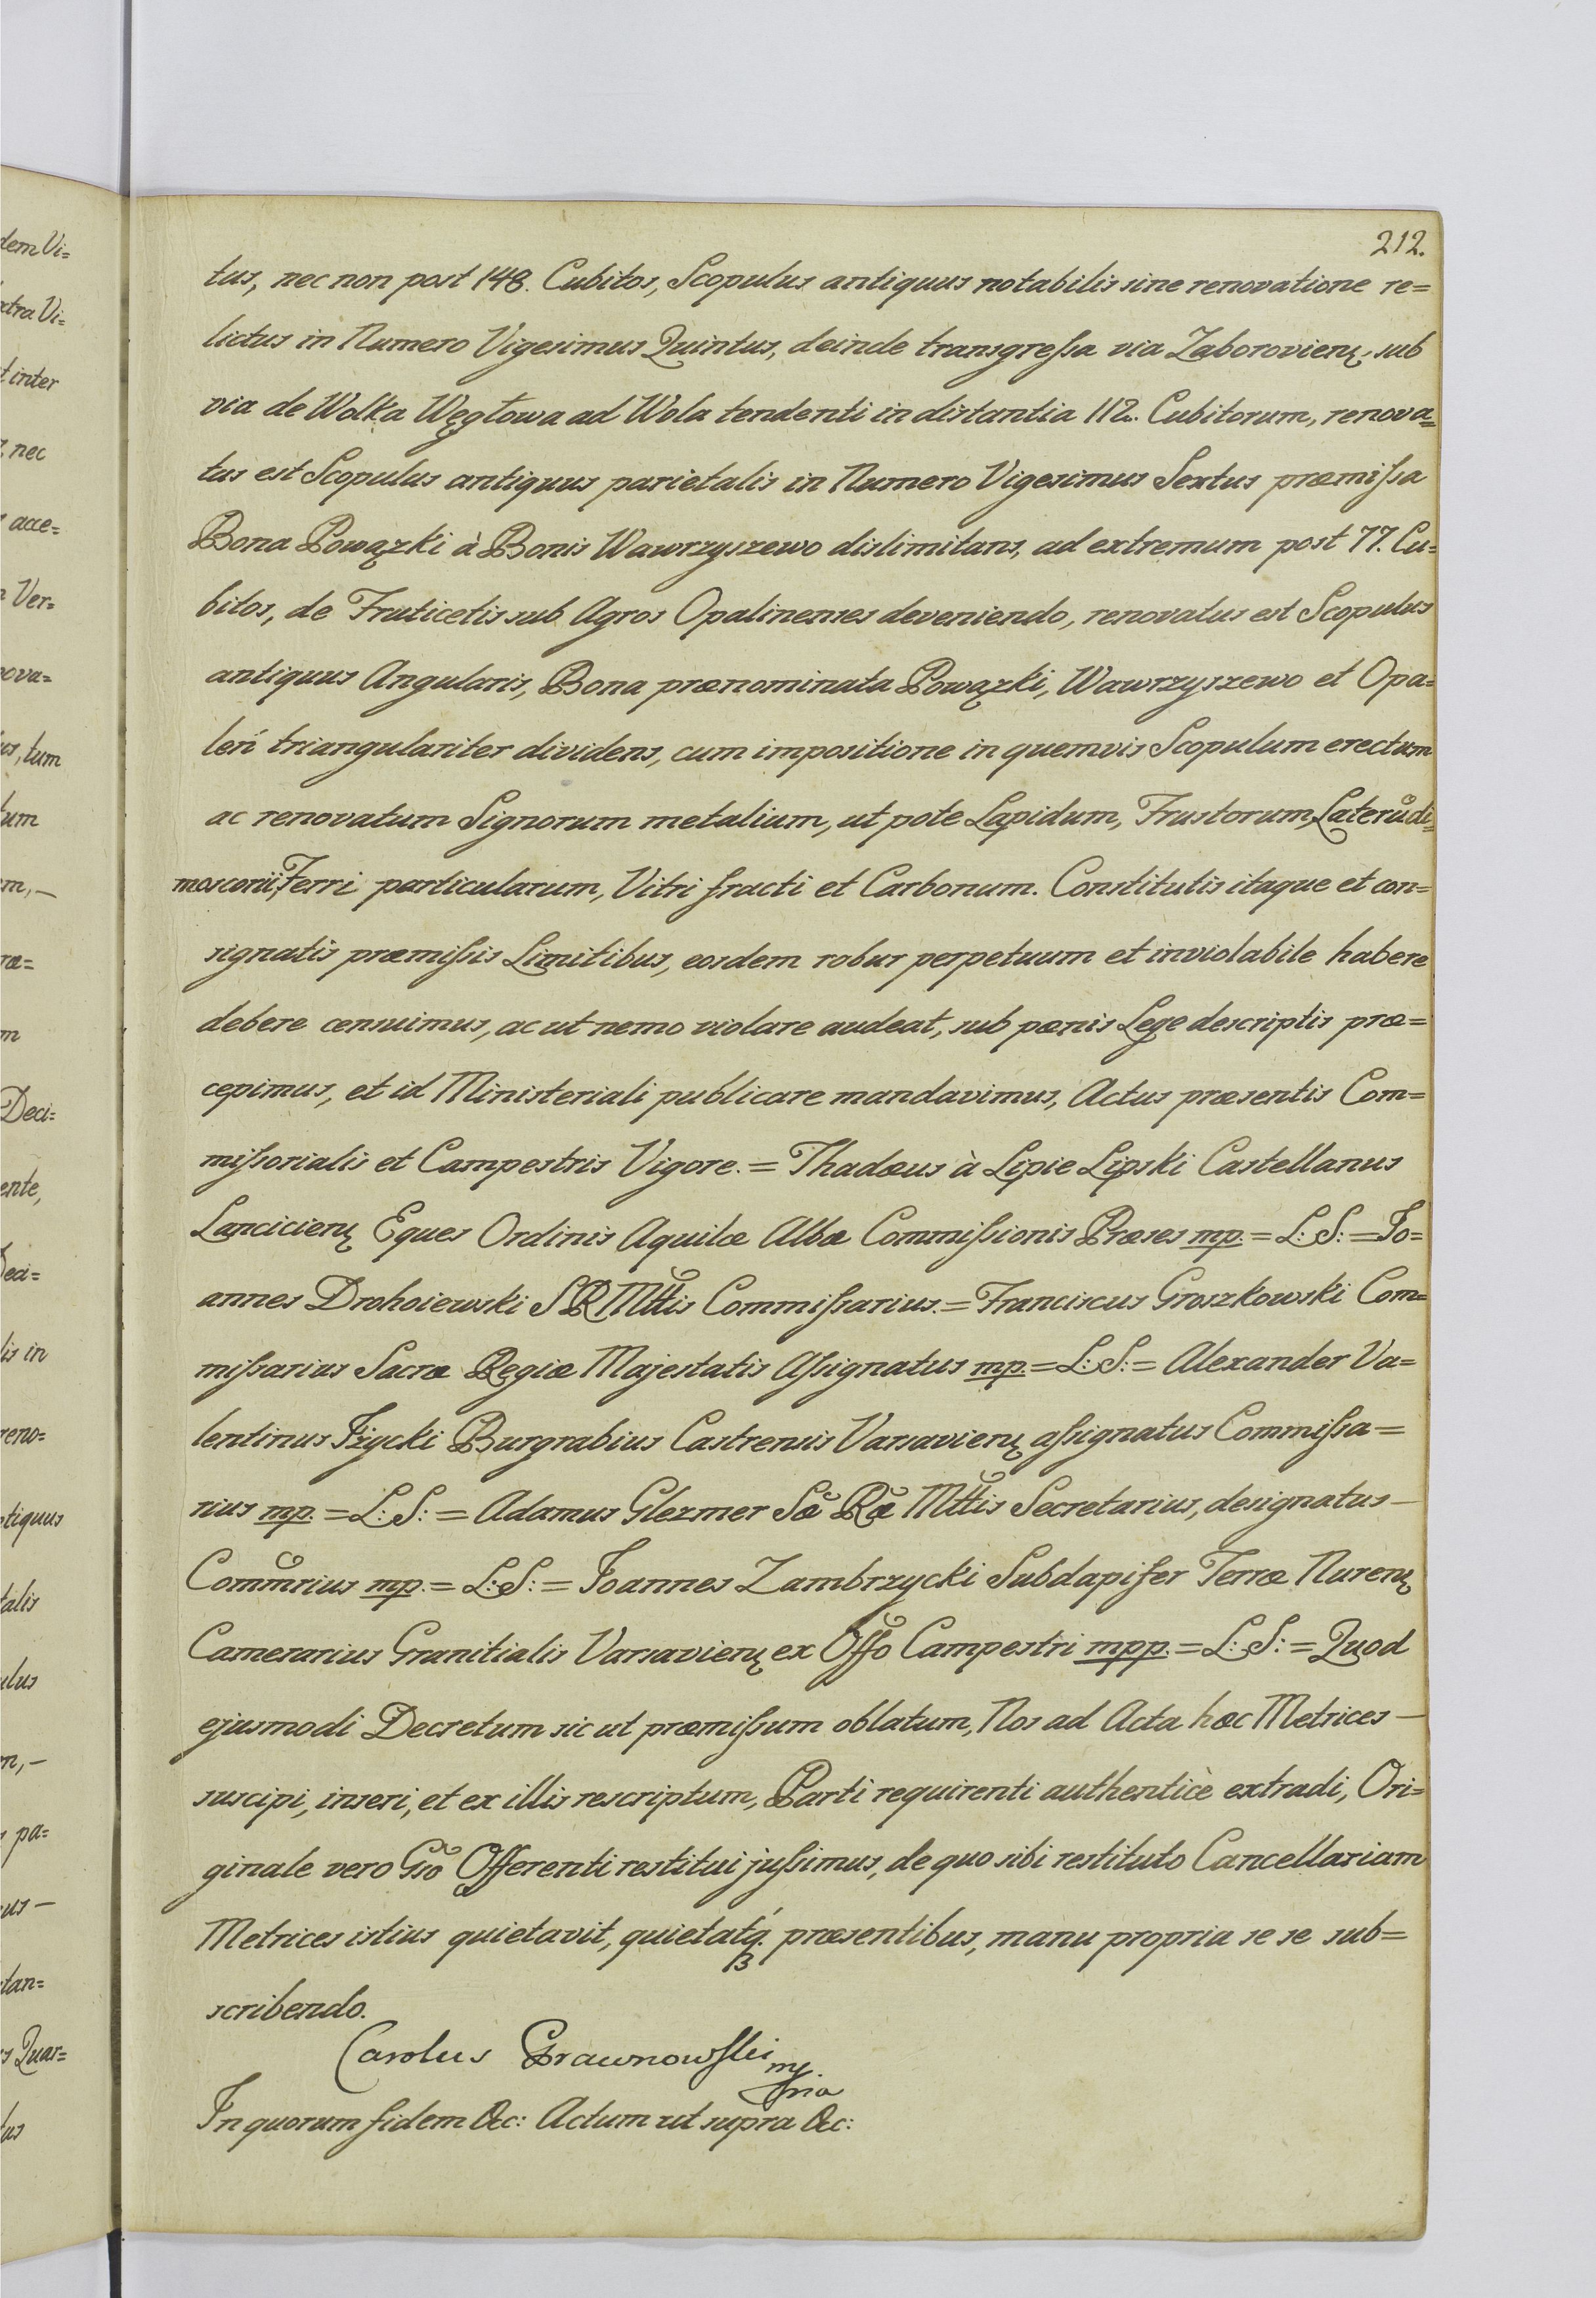 212.
tus, nec non post 148. Cubitos, Scopulus antiquus notabilis sine renovatione re=
lictus in Numero Vigesimus Quintus, deinde transgreſsa via Zaborovienę, sub
via de Wolka Węgłowa ad Wola tendenti in distantia 112. Cubitorum, renova=
tus est Scopulus antiquus parietalis in Numero Vigesimus Sextus præmiſsa
Bona Powązki à Bonis Wawrzyszewo dislimitans, ad extremum post 77. Cu=
bitos, de Fruticetis sub Agros Opalinenses deveniendo, renovatus est Scopulus
antiquus Angularis, Bona prænominata Powązki, Wawrzyszewo et Opa=
leń triangulariter dividens, cum impositione in quemvis Scopulum erectum
ac renovatum Signorum metalium, ut pote Lapidum, Frustorum, Laterũ di=
moscorii, Ferri particularum, Vitri fracti et Carbonum. Constitutis itaque et con=
signatis præmiſsis Limitibus, eosdem robur perpetuum et inviolabile habere
debere censuimus, ac ut nemo violare audeat, sub pœnis Lege descriptis præ=
cepimus, et id Ministeriali publicare mandavimus, Actus præsentis Com=
miſsorialis et Campestris Vigore. = Thadæus à Lipie Lipski Castellanus
Lancicienę Eques Ordinis Aquilæ Albæ Commiſsionis Præses mp. = L: S: = Jo=
annes Drohoiewski S R Mttis Commiſsarius. = Franciscus Groszkowski Com=
miſsarius Sacræ Regiæ Majestatis Aſsignatus mp. = L: S: = Alexander Va=
lentinus Iżycki Burgrabius Castrensis Varsavienę aſsignatus Commiſsa=
rius mp. = L: S: = Adamus Glezmer Sæ Ræ Mttis Secretarius, designatus —
Commrius mp. = L: S: = Joannes Zambrzycki Subdapifer Terræ Nurenę
Camerarius Granitialis Varsavienę ex Offo Campestri mpp. = L: S: = Quod
ejusmodi Decretum sic ut præmiſsum oblatum, Nos ad Acta hæc Metrices —
suscipi, inseri, et ex illis rescriptum, Parti requirenti authenticè extradi, Ori=
ginale vero Gso Offerenti restitui juſsimus, de quo sibi restituto Cancellariam
Metrices istius quietavit, quietatq́. præsentibus, manu propria se se sub=
scribendo.
Carolus
In quorum fidem &c: Actum ut supra &c: